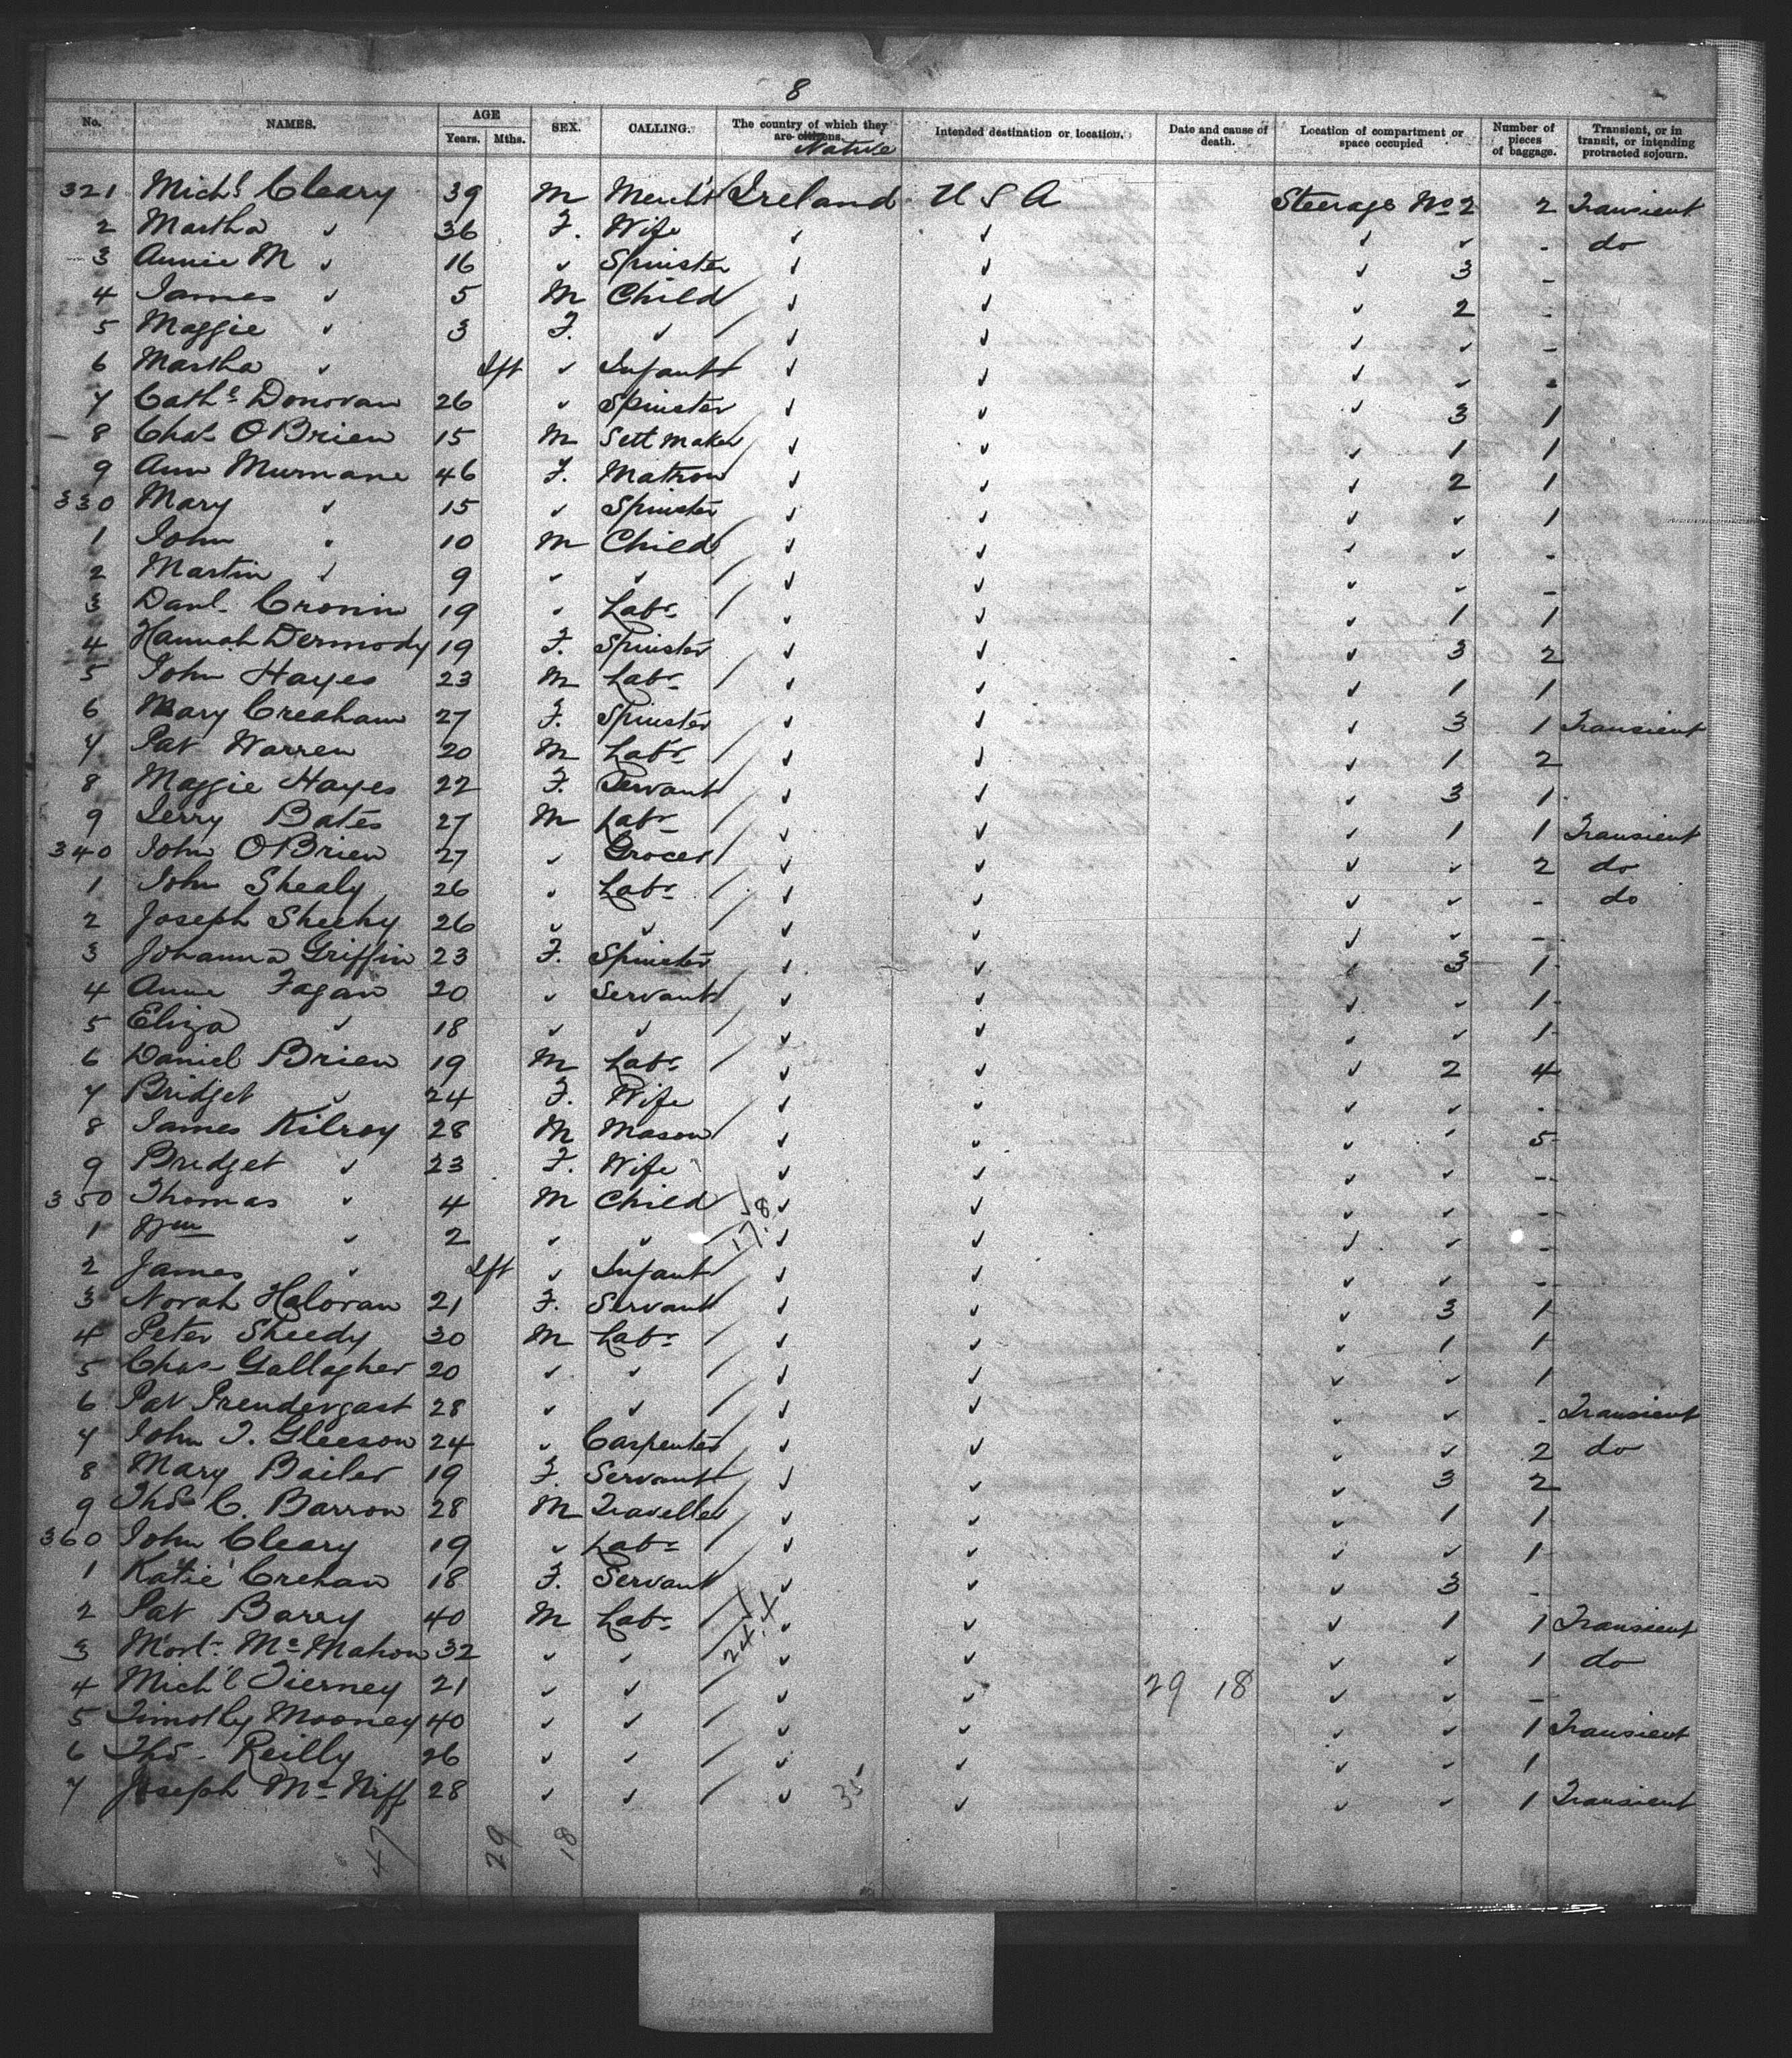 8
No. NAMES. AGE Years. Mths. SEX. CALLING. The country of which they are citizens. Native Intended destination or location. Date and cause of death. Location of compartment or space occupied Number of pieces of baggage. Transient, or in transit, or intending protracted sojourn.
321 Michl Cleary 39 M Mercht Ireland U S A Steerage No 2 2 Transient
2 Martha ✓ 36 F. Wife ✓ ✓ ✓ ✓ - do
3 Annie M ✓ 16 ✓ Spinster ✓ ✓ ✓ 3 -
4 James ✓ 5 M Child ✓ ✓ ✓ 2 -
5 Maggie ✓ 3 F. ✓ ✓ ✓ ✓ ✓ -
6 Martha ✓ Ift ✓ Infant ✓ ✓ ✓ ✓ -
7 Cathe Donovan 26 ✓ Spinster ✓ ✓ ✓ 3 1
8 Chas OBrien 15 M Sett maker ✓ ✓ ✓ 1 1
9 Ann Murnane 46 F. Matron ✓ ✓ ✓ 2 1
330 Mary ✓ 15 ✓ Spinster ✓ ✓ ✓ ✓ 1
1 John ✓ 10 M Child ✓ ✓ ✓ ✓ -
2 Martin ✓ 9 ✓ ✓ ✓ ✓ ✓ ✓ -
3 Danl Cronin 19 ✓ Labr ✓ ✓ ✓ 1 1
4 Hannah Dermody 19 F. Spinster ✓ ✓ ✓ 3 2
5 John Hayes 23 M Labr ✓ ✓ ✓ 1 1
6 Mary Creaham 27 F. Spinster ✓ ✓ ✓ 3 1 Transient
7 Pat Warren 20 M Labr ✓ ✓ ✓ 1 2
8 Maggie Hayes 22 F. Servant ✓ ✓ ✓ 3 1
9 Jerry Bates 27 M Labr ✓ ✓ ✓ 1 1 Transient
340 John OBrien 27 ✓ Grocer ✓ ✓ ✓ ✓ 2 do
1 John Shealy 26 ✓ Labr ✓ ✓ ✓ ✓ - do
2 Joseph Sheehy 26 ✓ ✓ ✓ ✓ ✓ ✓ -
3 Johanna Griffin 23 F. Spinster ✓ ✓ ✓ 3 1
4 Anne Fagan 20 ✓ Servant ✓ ✓ ✓ ✓ 1
5 Eliza ✓ 18 ✓ ✓ ✓ ✓ ✓ ✓ 1
6 Daniel Brien 19 M Labr ✓ ✓ ✓ 2 4
7 Bridget ✓ 24 F. Wife ✓ ✓ ✓ ✓ -
8 James Kilroy 28 M Mason ✓ ✓ ✓ ✓ 5
9 Bridget ✓ 23 F. Wife ✓ ✓ ✓ ✓ -
350 Thomas ✓ 4 M Child ✓ ✓ ✓ ✓ -
1 Wm ✓ 2 ✓ ✓ 17.8 ✓ ✓ ✓ ✓ -
2 James ✓ Ift ✓ Infant ✓ ✓ ✓ ✓ -
3 Norah Haloran 21 F. Servant ✓ ✓ ✓ 3 1
4 Peter Sheedy 30 M Labr ✓ ✓ ✓ 1 1
5 Chas Gallagher 20 ✓ ✓ ✓ ✓ ✓ ✓ 1
6 Pat Prendergast 28 ✓ ✓ ✓ ✓ ✓ ✓ - Transient
7 John T. Gleeson 24 ✓ Carpenter ✓ ✓ ✓ ✓ 2 do
8 Mary Bailer 19 F. Servant ✓ ✓ ✓ 3 2
9 Thos C. Barron 28 M Traveller ✓ ✓ ✓ 1 1
360 John Cleary 19 ✓ Labr ✓ ✓ ✓ ✓ 1
1 Katie Crehan 18 F. Servant ✓ ✓ ✓ 3 -
2 Pat Barry 40 M Labr ✓ ✓ ✓ 1 1 Transient
3 Mort. Mc Mahon 32 ✓ ✓ 24.4 ✓ ✓ ✓ ✓ 1 do
4 Mich'l Tierney 21 ✓ ✓ ✓ ✓ 29 18 ✓ ✓ -
5 Timothy Mooney 40 ✓ ✓ ✓ ✓ ✓ ✓ 1 Transient
6 Thos Reilly 26 ✓ ✓ ✓ ✓ ✓ ✓ 1
7 Joseph Mc Niff 28 ✓ ✓ ✓ 35 ✓ ✓ ✓ 1 Transient
47 29 18